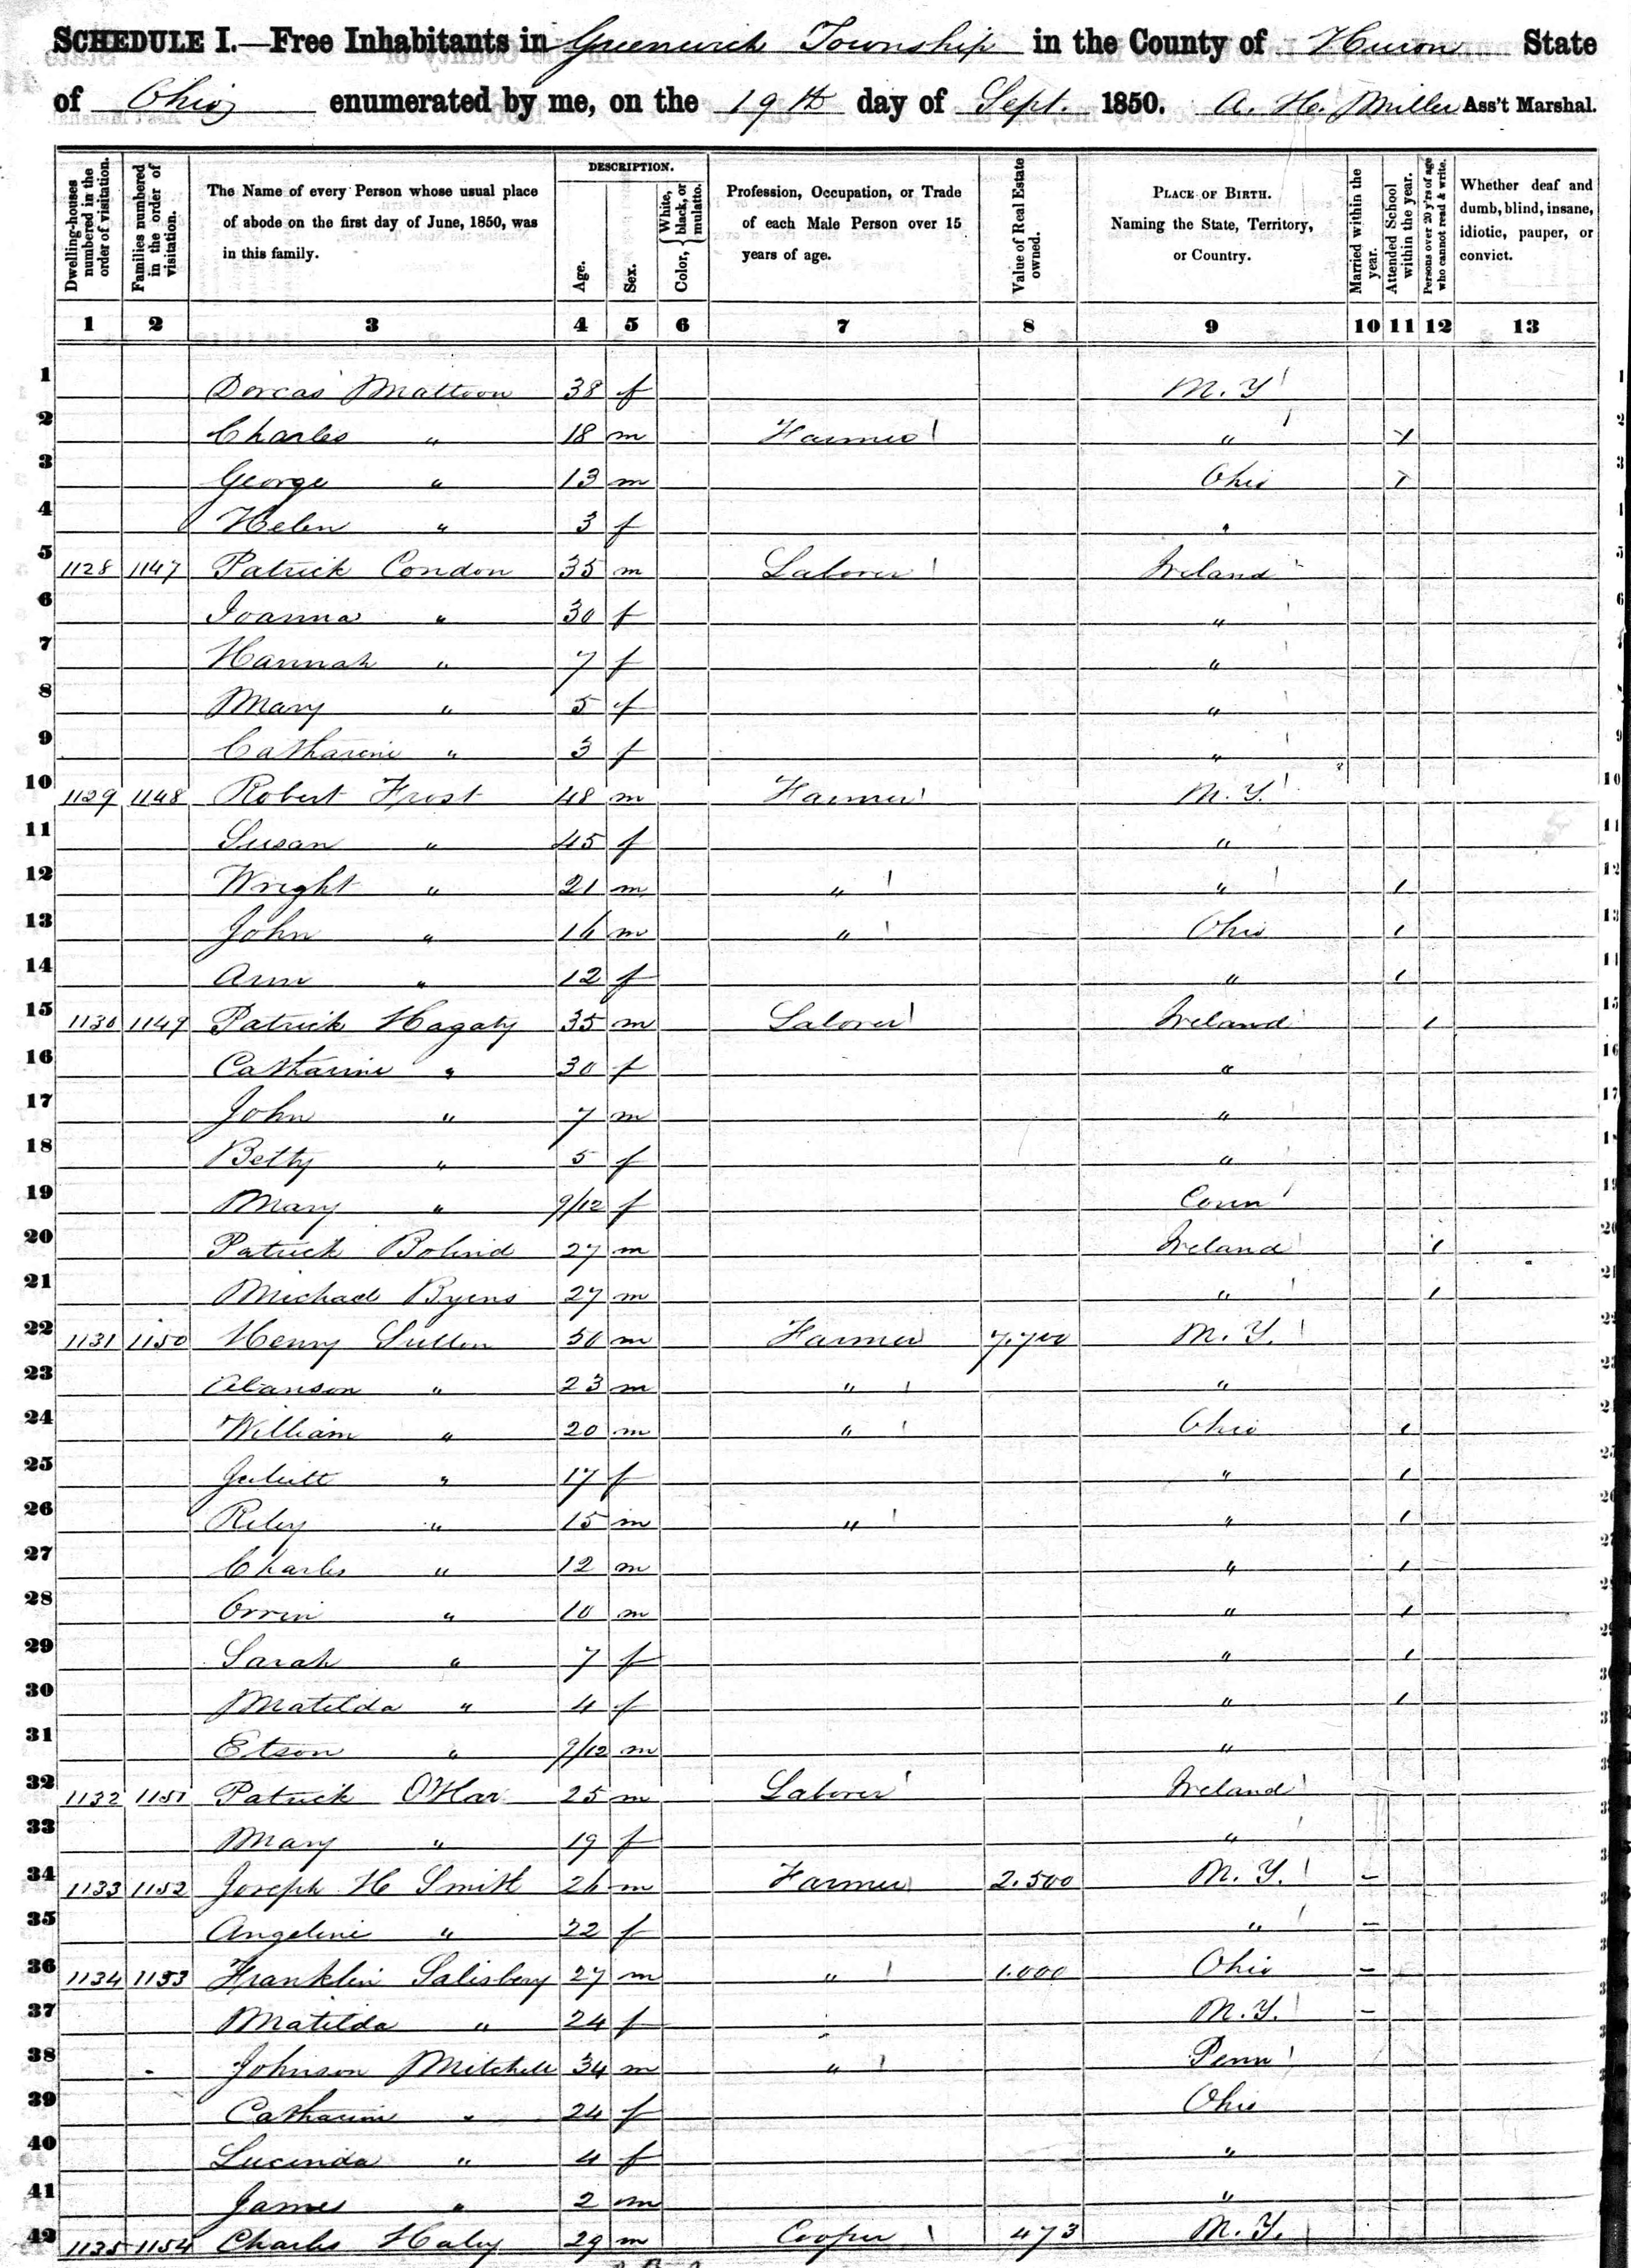 SCHEDULE I.—Free Inhabitants in Greenwich Township in the County of Huron State
of Ohio enumerated by me, on the 19th day of Sept. 1850. A. H. Miller Ass't Marshal.
Dwelling-houses numbered in the order of visitation.
Families numbered in the order of visitation.
The Name of every Person whose usual place of abode on the first day of June, 1850, was in this family.
DESCRIPTION.
Age.
Sex.
Color, { White, black, or mulatto.
Profession, Occupation, or Trade of each Male Person over 15 years of age.
Value of Real Estate owned.
PLACE OF BIRTH. Naming the State, Territory, or Country.
Married within the year.
Attended School within the year.
Persons over 20 y'rs of age who cannot read & write.
Whether deaf and dumb, blind, insane, idiotic, pauper, or convict.
1 2 3 4 5 6 7 8 9 10 11 12 13
1 Dorcas Mattoon 38 f N. Y 1
2 Charles " 18 m Farmer " / 2
3 George " 13 m Ohio / 3
4 Helen " 3 f "
5 1128 1147 Patrick Condon 35 m Laborer Ireland 5
6 Joanna " 30 f " 6
7 Hannah " 7 f "
8 Mary " 5 f "
9 Catharine " 3 f " 9
10 1129 1148 Robert Frost 48 m Farmer N. Y. 10
11 Susan " 45 f " 11
12 Wright " 21 m " " / 12
13 John " 16 m " Ohio / 13
14 Ann " 12 f " /
15 1130 1149 Patrick Hagaty 35 m Laborer Ireland / 15
16 Catharine " 30 f " 16
17 John " 7 m " 17
18 Betty " 5 f "
19 Mary " 9/12 f Conn
20 Patrick Bolind 27 m Ireland /
21 Michael Byens 27 m " /
22 1131 1150 Henry Sutton 50 m Farmer 7,700 N. Y.
23 Alanson " 23 m " "
24 William " 20 m " Ohio /
25 Juliett " 17 f " /
26 Riley " 15 m " " /
27 Charles " 12 m " /
28 Orrin " 10 m " /
29 Sarah " 7 f " /
30 Matilda " 4 f " /
31 Etson " 9/12 m "
32 1132 1151 Patrick O'Har 25 m Laborer Ireland
33 Mary " 19 f "
34 1133 1152 Joseph H Smith 26 m Farmer 2.500 N. Y. –
35 Angeline " 22 f " –
36 1134 1153 Franklin Salisbery 27 m " 1.000 Ohio –
37 Matilda " 24 f N. Y. –
38 Johnson Mitchell 34 m " Penn
39 Catharine " 24 f Ohio
40 Lucinda " 4 f "
41 James " 2 m "
42 1135 1154 Charles Haley 29 m Cooper 473 N. Y.